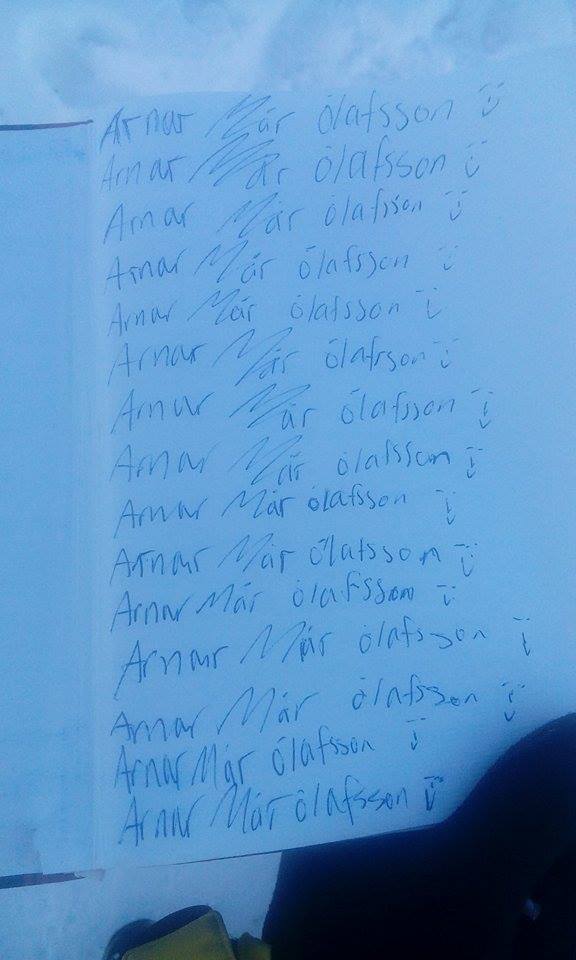 Arnar Már Ólafsson
Arnar Már Ólafsson
Arnar Már Ólafsson
Arnar Már Ólafsson
Arnar Már Ólafsson
Arnar Már Ólafsson
Arnar Már Ólafsson
Arnar Már Ólafsson
Arnar Már Ólafsson
Arnar Már Ólafsson
Arnar Már Ólafsson
Arnar Már Ólafsson
Arnar Már Ólafsson
Arnar Már Ólafsson
Arnar Már Ólafsson